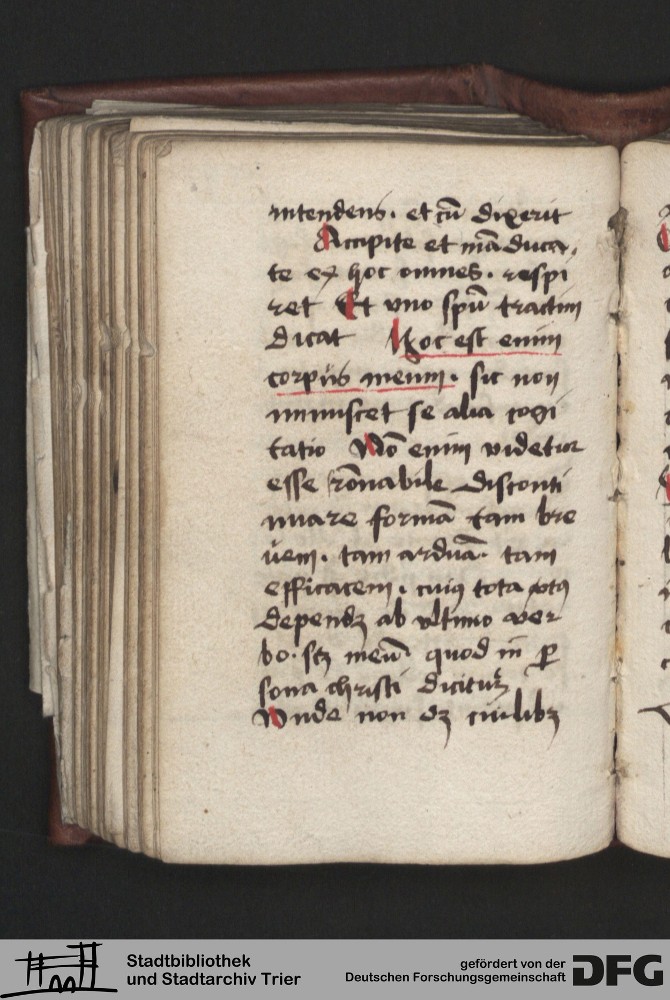 intendens. et cū dixerit
Accipite et māduca,
te ex hoc omnes. respi
ret Et vno spū tractim
dicat Hoc est enim
corpus meum. sic non
immiscet se alia cogi
tatio Nō enim videtur
esse rōnabile disconti
nuare formā tam bre
uem. tam arduā. tam
efficacem. cuiꝰ tota v̓tꝰ
dependꝫ ab vltimo ver
bo. scꝫ meū quod in ꝑ
sona christi dicitur
Vnde non dꝫ cuilibꝫ
Stadtbibliothek
und Stadtarchiv Trier
gefördert von der
Deutschen Forschungsgemeinschaft
DFG